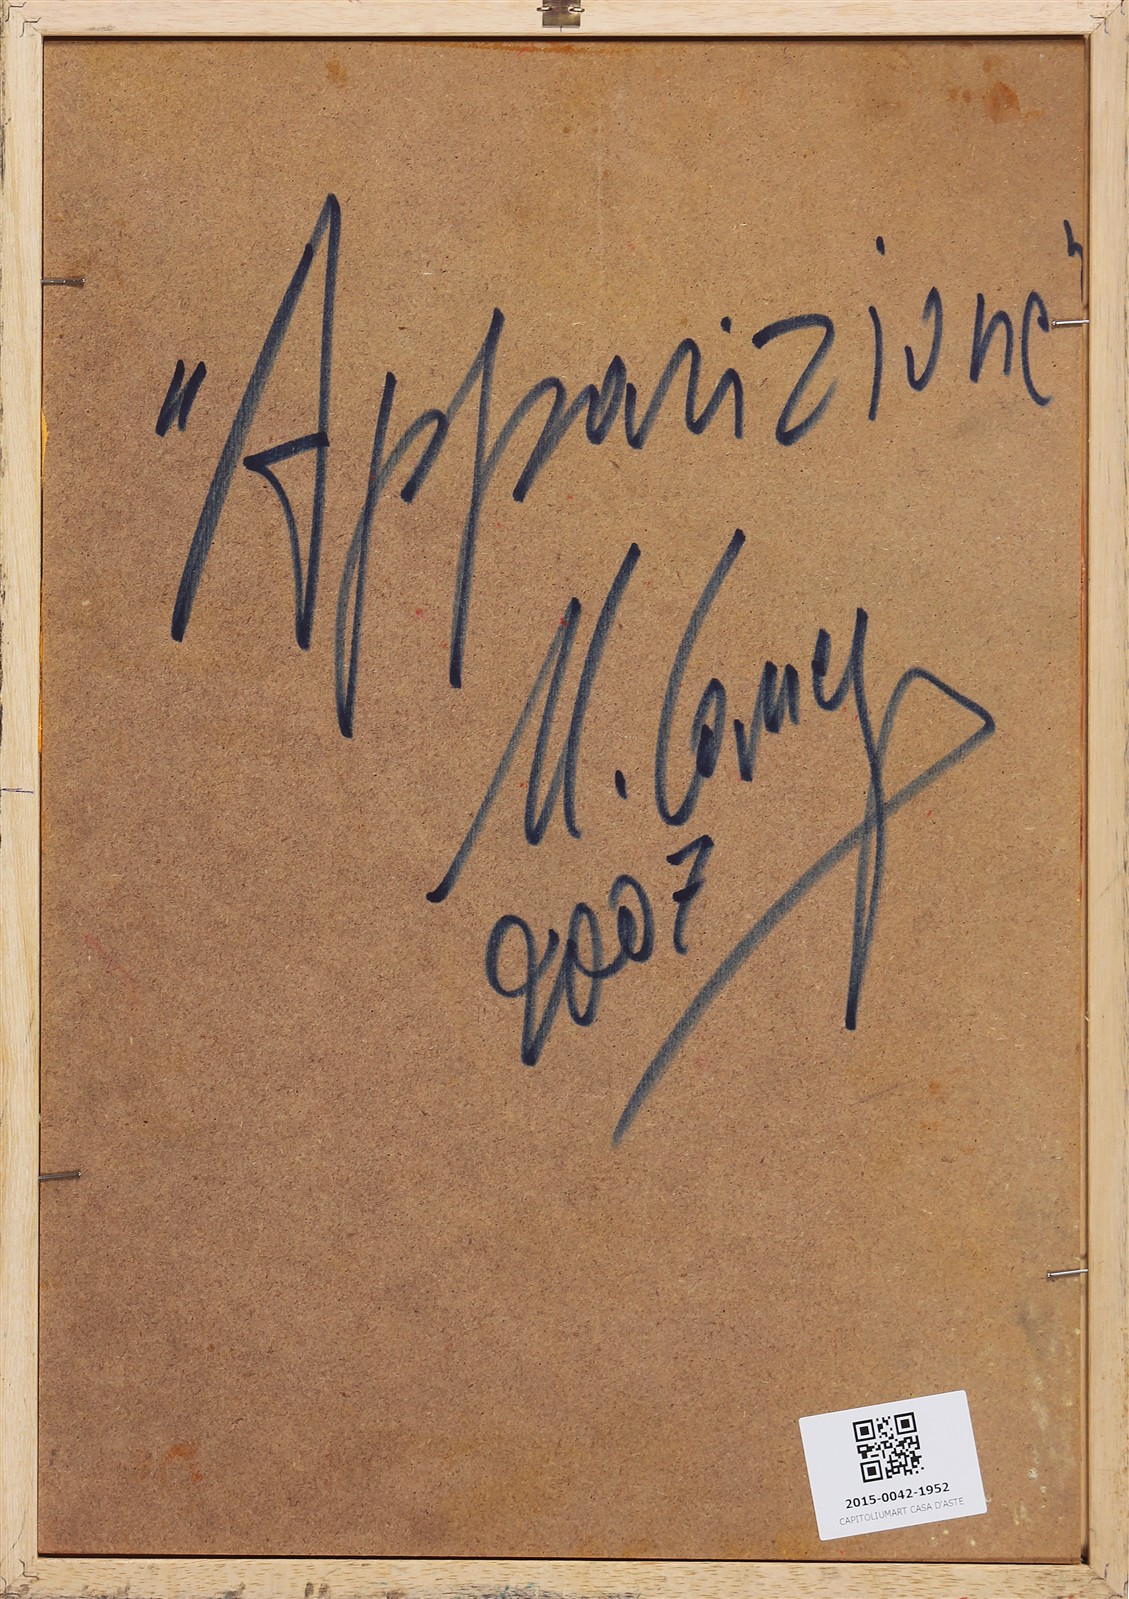 "Apparizione"
2007
2015-0042-1952
CAPITOLIUMART CASA D'ASTE